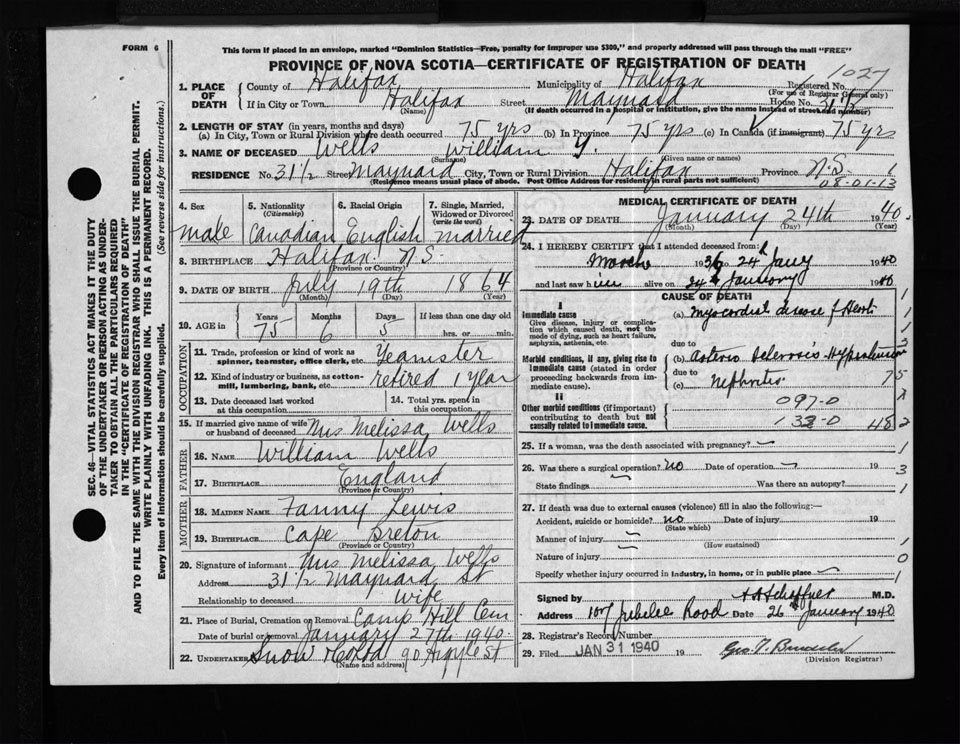 FORM 6
This form if placed in an envelope, marked "Dominion Statistics—Free, penalty for improper use $300," and properly addressed will pass through the mail "FREE"
PROVINCE OF NOVA SCOTIA—CERTIFICATE OF REGISTRATION OF DEATH
1027
1. PLACE OF DEATH
County of Halifax Municipality of Halifax Registered No.
(For use of Registrar General only)
If in City or Town, Halifax Street Maynard House No. 31 1/2
(Name) (If death occurred in a hospital or institution, give the name instead of street and number)
2. LENGTH OF STAY (in years, months and days)
(a) In City, Town or Rural Division where death occurred 75 yrs (b) In Province 75 yrs (c) In Canada (if immigrant) 75 yrs
3. NAME OF DECEASED Wells William Y.
(Surname) (Given name or names)
RESIDENCE No. 31 1/2 Street Maynard City, Town or Rural Division Halifax Province N.S.
(Residence means usual place of abode. Post Office Address for residents in rural parts not sufficient)
08-01-13
4. Sex
5. Nationality (Citizenship)
6. Racial Origin
7. Single, Married, Widowed or Divorced (write the word)
male Canadian English married
8. BIRTHPLACE Halifax N.S.
(Province or Country)
9. DATE OF BIRTH July 19th 1864
(Month) (Day) (Year)
10. AGE in Years Months Days If less than one day old
75 6 5 hrs. or min.
OCCUPATION
11. Trade, profession or kind of work as spinner, teamster, office clerk, etc. Teamster
12. Kind of industry or business, as cotton-mill, lumbering, bank, etc. retired 1 year
13. Date deceased last worked at this occupation
14. Total yrs. spent in this occupation
15. If married give name of wife or husband of deceased Mrs Melissa Wells
FATHER
16. NAME William Wells
17. BIRTHPLACE England
(Province or Country)
MOTHER
18. MAIDEN NAME Fanny Lewis
19. BIRTHPLACE Cape Breton
(Province or Country)
20. Signature of informant Mrs Melissa Wells
Address 31 1/2 Maynard St
Relationship to deceased wife
21. Place of Burial, Cremation or Removal Camp Hill Cem
Date of burial or removal January 27th 1940
22. UNDERTAKER Snow & Co Ltd 90 Argyle St
(Name and address)
MEDICAL CERTIFICATE OF DEATH
23. DATE OF DEATH January 24th 1940
(Month) (Day) (Year)
24. I HEREBY CERTIFY that I attended deceased from:
March 1936 to 24 Jany 1940
and last saw him alive on 24 January 1940
CAUSE OF DEATH
I
Immediate cause
Give disease, injury or complication which caused death, not the mode of dying, such as heart failure, asphyxia, asthenia, etc.
(a) Myocardial disease of Heart
due to
Morbid conditions, if any, giving rise to immediate cause (stated in order proceeding backwards from immediate cause).
(b) Arterio Sclerosis - Hypertension
due to
(c) Nephritis
75
II
Other morbid conditions (if important) contributing to death but not causally related to immediate cause.
097-0
132-0
48
25. If a woman, was the death associated with pregnancy?
26. Was there a surgical operation? no Date of operation 19
State findings Was there an autopsy?
27. If death was due to external causes (violence) fill in also the following:—
Accident, suicide or homicide? no Date of injury 19
(State which)
Manner of injury
(How sustained)
Nature of injury
Specify whether injury occurred in industry, in home, or in public place
Signed by M.D.
Address 107 Jubilee Road Date 26th January 1940
28. Registrar's Record Number
29. Filed JAN 31 1940 19
(Division Registrar)
SEC. 46—VITAL STATISTICS ACT MAKES IT THE DUTY
OF THE UNDERTAKER OR PERSON ACTING AS UNDER-
TAKER TO OBTAIN ALL THE PARTICULARS REQUIRED
IN THE "CERTIFICATE OF REGISTRATION OF DEATH"
AND TO FILE THE SAME WITH THE DIVISION REGISTRAR WHO SHALL ISSUE THE BURIAL PERMIT.
WRITE PLAINLY WITH UNFADING INK. THIS IS A PERMANENT RECORD.
Every item of information should be carefully supplied. (See reverse side for instructions.)